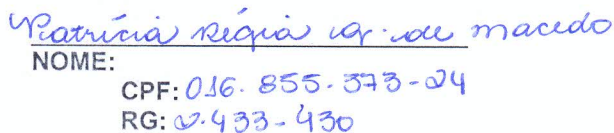 Patrícia Régia G. de Macedo
NOME:
CPF: 016.855.373-24
RG: 2.433-430